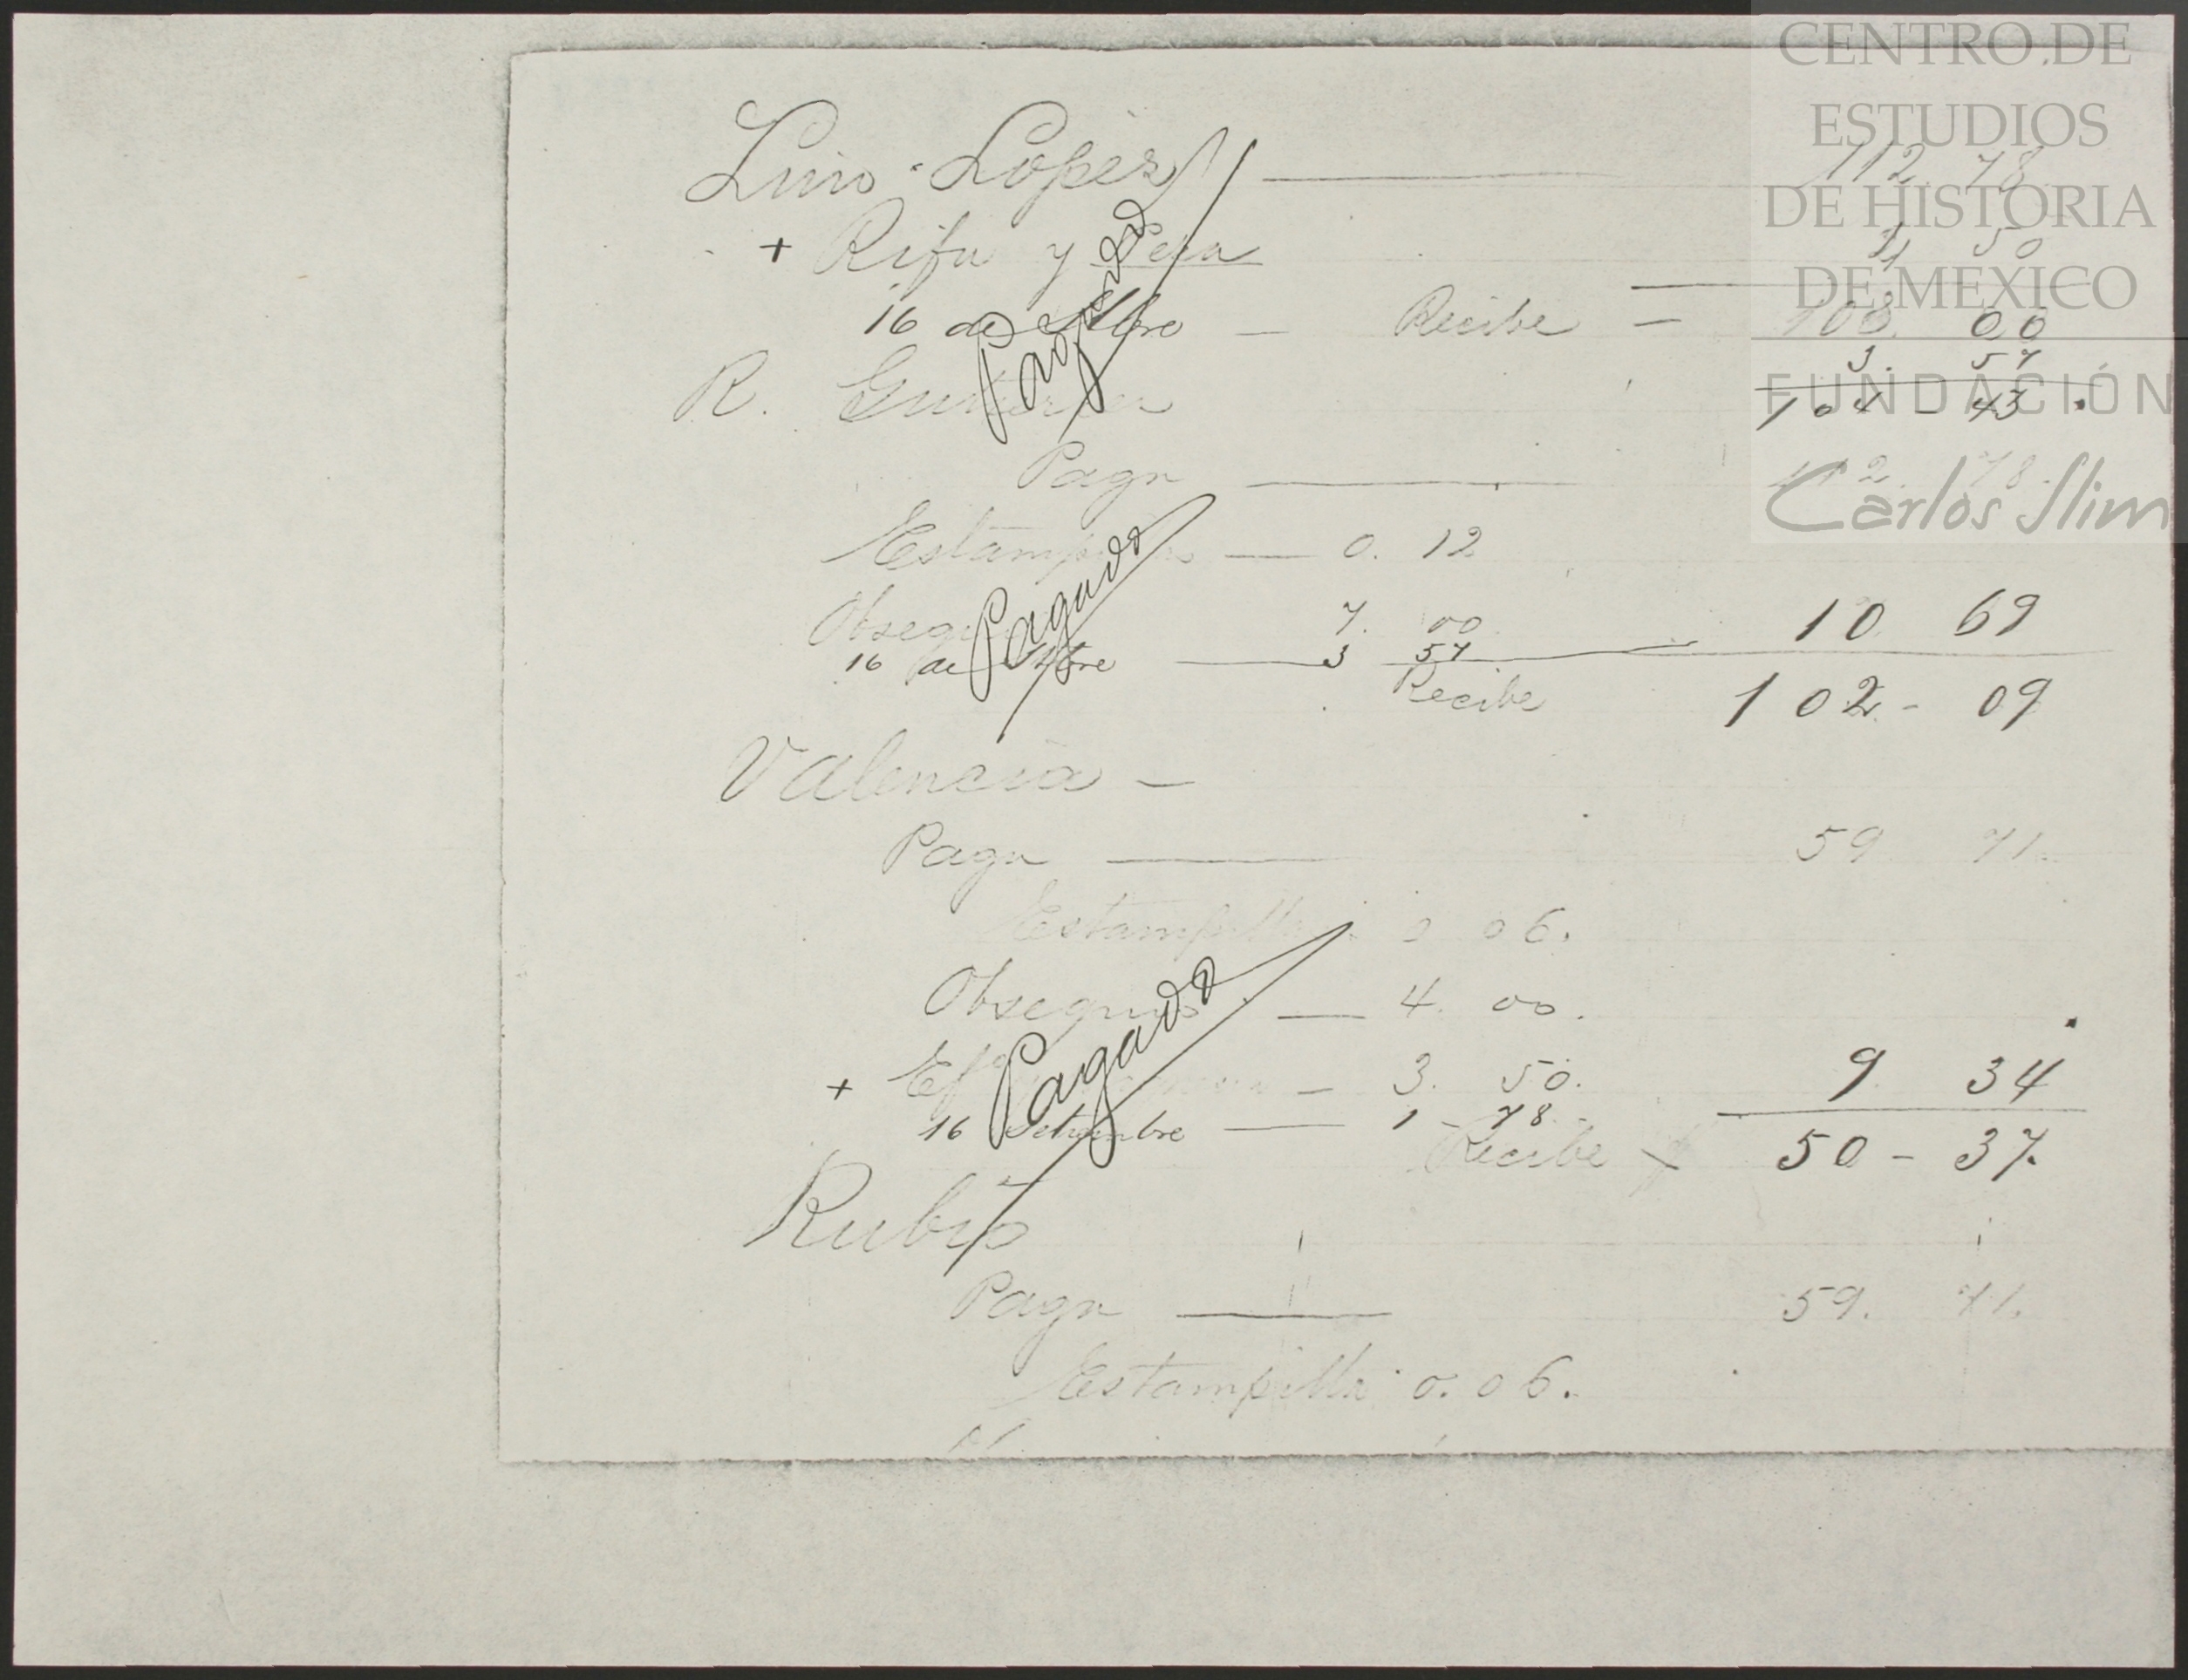 CENTRO DE
ESTUDIOS
DE HISTORIA
DE MEXICO
FUNDACIÓN
Carlos Slim
Lino Lopez 112 78
+ Rifa y 50
Pagado
16 de Recibe = 108. 00
3. 57
R. Gutierrez 104 - 43.
Paga 112. 78.
Estampillas 0. 12
Pagado
Obsequio 7. 00 10 69
16 de 3 57
Recibe 102 - 09
Valencia
Paga 59 71.
Estampilla 0 06.
Obsequio 4. 00.
Pagado
+ 3. 50. 9 34
16 Setiembre 1 - 78
Recibe 50 - 37.
Rubio
Paga 59. 71.
Estampilla 0. 06.